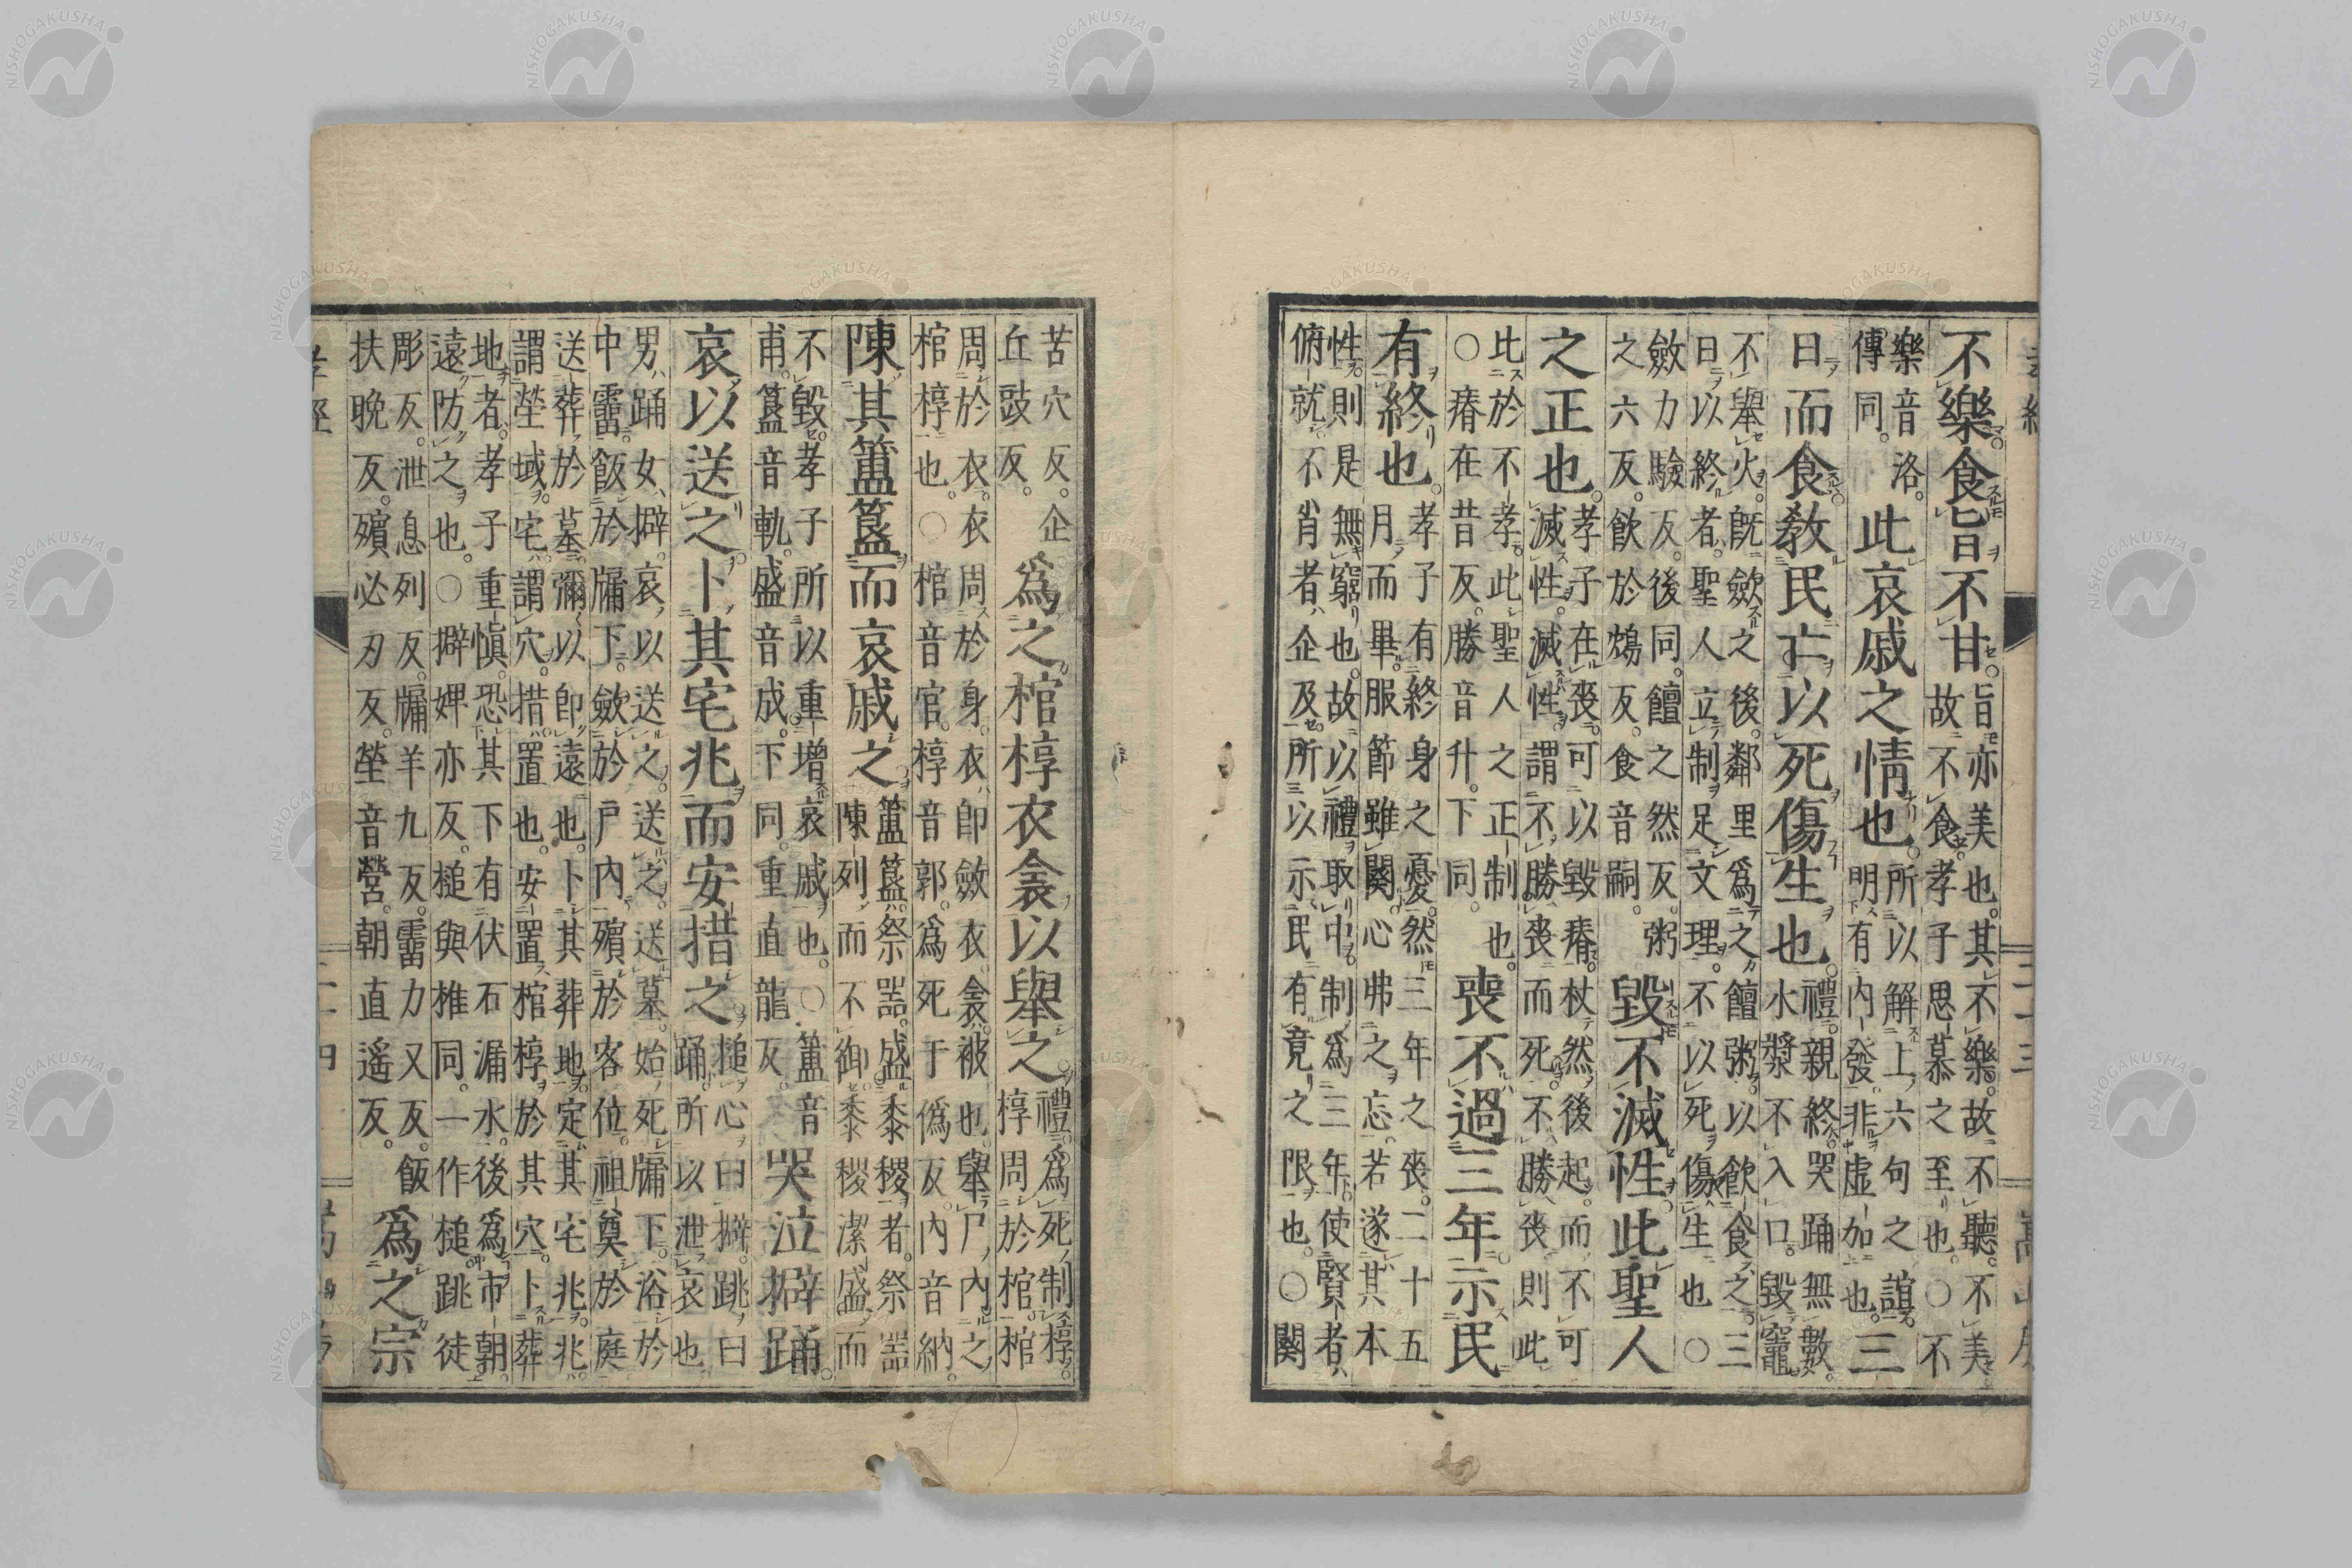 二十三
不樂食旨不甘
旨亦美也。其不樂。故不聽。不美
故不食。孝子思慕之至也。○不
樂音洛。
傳同。
此哀戚之情也。
所以解上六句之誼
明有內發。非虛加也。
三
日而食。敎民亡以死傷生也。
禮。親終。哭踊無數。
水漿不入口。毀竈
不舉火。旣歛之後。鄰里爲之饘粥。以飲食之。三
日以終者。聖人立制足文理。不以死傷生也○
斂力驗反。後同。饘之然反。粥
之六反。飲於鴆反。食音嗣。
毀不滅性。此聖人
之正也。
孝子在喪。可以毀瘠。杖然後起。而不可
滅性。滅性謂不勝喪而死。不勝喪則此
此於不孝。此聖人之正制也。
○瘠在昔反。勝音升。下同。
喪不過三年。示民
有終也。
孝子有終身之憂。然三年之喪。二十五
月而畢。服節雖闋。心弗之忘。若遂其本
性。則是無窮也。故以禮取中。制爲三年。使賢者
俯就。不肖者企及。所以示民有竟之限也。○闋
苦穴反。企
丘豉反。
爲之棺椁衣衾以舉之。
禮。爲死制椁。
椁周於棺。棺
周於衣。衣周於身。衣卽斂衣。衾被也。舉尸內之
棺椁也。○棺音官。椁音郭。爲死于僞反。內音納。
陳其簠簋而哀戚之。
簠簋祭器。盛黍稷者。祭器
陳列而不御。黍稷潔盛而
不毀。孝子所以重增哀戚也。○簠音
甫。簋音軌。盛音成。下同。重直龍反。
哭泣擗踊。
哀以送之。卜其宅兆。而安措之。
搥心曰擗。跳曰
踊。所以泄哀也
男踊女擗。哀以送之。送之。送墓。始死牖下。浴於
中霤。飯於牖下。歛於戶內。殯於客位。祖奠於庭
送葬於墓。彌以卽遠也。卜其葬地。定其宅兆。兆
謂塋域。宅謂穴。措置也。安置棺椁於其穴。卜葬
地者。孝子重愼。恐其下有伏石漏水。後爲市朝。
遠防之也。○擗婢亦反。搥與推同。一作槌跳徒
彫反。泄息列反。牖羊九反。霤力又反。飯
扶晚反。殯必刃反。塋音營。朝直遙反。
爲之宗
孝經
二十四
NISHOGAKUSHA